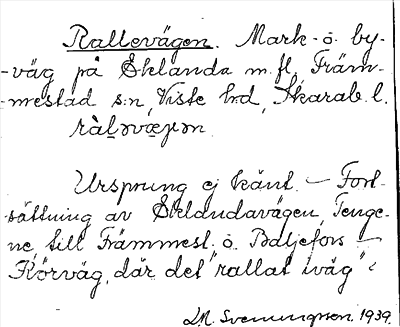 Rallevägen. Mark- o. by-
-väg på Eklanda m.fl., Främ-
-mestad s:n, Viste hd, Skarab. l.
Ursprung ej känt. – Fort-
-sättning av Eklandavägen, Tenge-
ne, till Främmest. o. Baljefors –
Körväg, där det "rallat iväg"
M. Svenungsson. 1939.